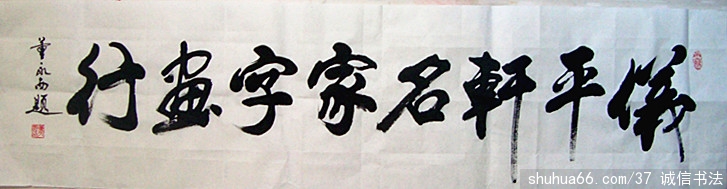 儀平軒名家字畫行
董永西題
shuhua66.com/37 诚信书法